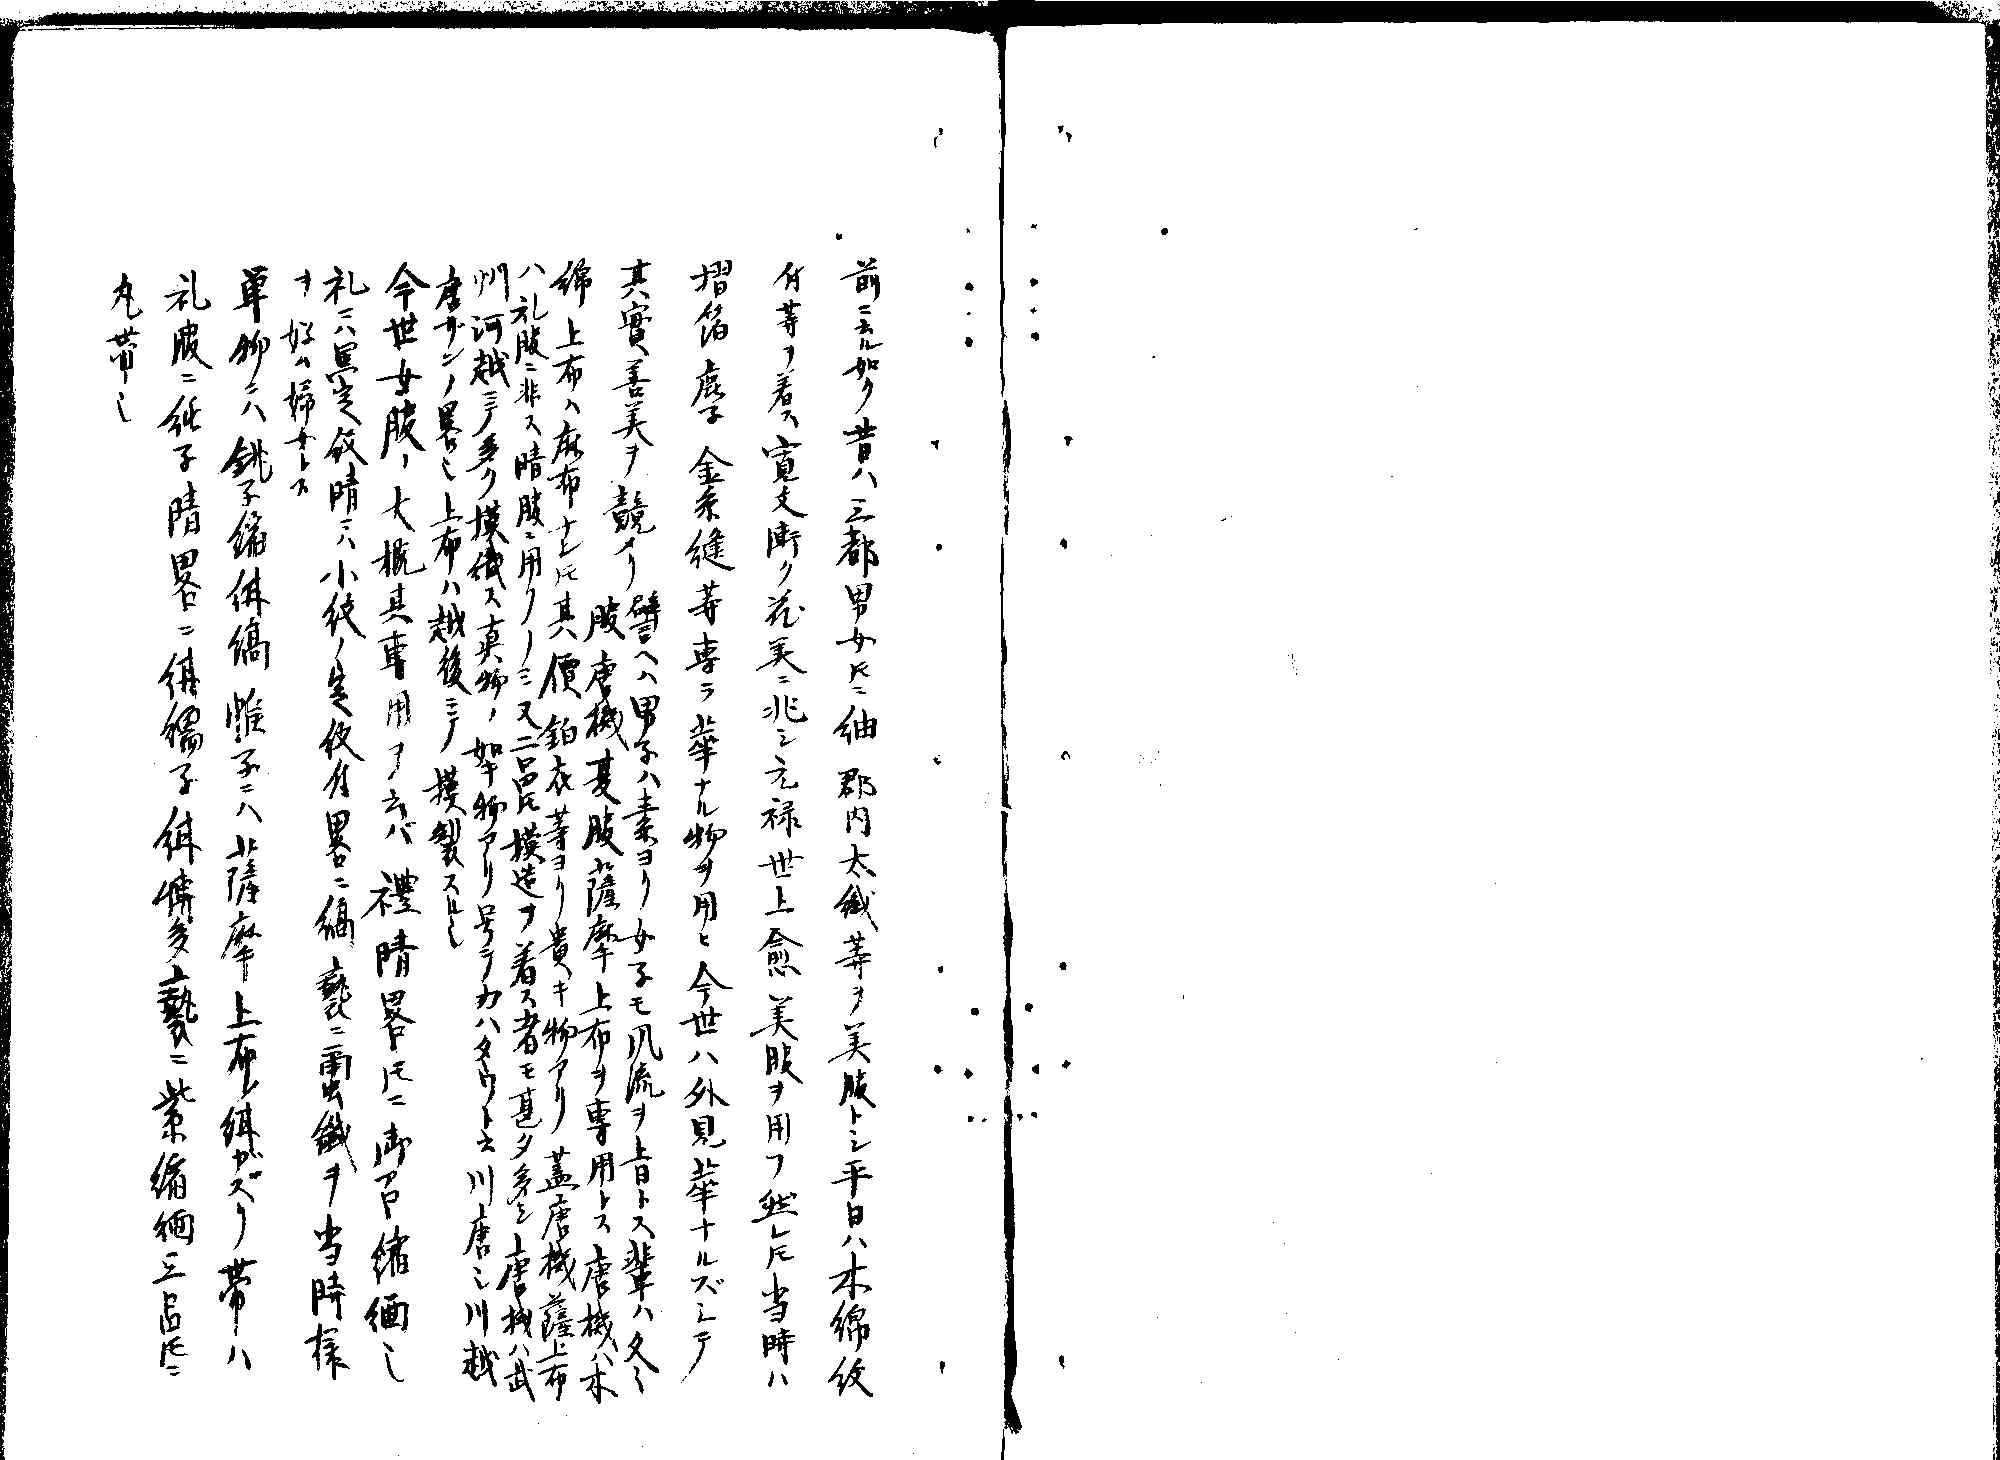 前ニ云ル如ク昔ハ三都男女𪜈ニ紬郡内太織等ヲ美服トシ平日ハ木綿紋
付等ヲ着ス寛文漸ク花美ニ兆シ元禄世上愈美服ヲ用フ然レ𪜈当時ハ
摺箔鹿子金糸縫等専ラ華ナル物ヲ用ヒ今世ハ外見華ナルズシテ
其實善美ヲ競ヘリ譬ヘハ男子ハ素ヨリ女子モ風流ヲ旨トス輩ハ冬ハ
服唐機夏服薩摩上布ヲ専用トス唐機ハ木
綿上布ハ麻布ナレ𪜈其價鉑衣等ヨリ貴キ物アリ蓋唐機薩上布
ハ礼服ニ非ス晴服ニ用フノミ又二品𪜈模造ヲ着ス者モ甚タ多シ唐機ハ武
州河越ニテ多ク模織ス真物ノ如キ物アリ号テカハタウト云川唐也川越
唐ザンノ畧也上布ハ越後ニテ模製スル也
今世女服ノ大概其専用ヲ云ハバ禮晴畧𪜈ニ御召縮緬也
礼ニハ黒定紋晴ニハ小紋ノ定紋付畧ニ縞褻ニ雲織ヲ当時様
ヲ好ム婦女トス
単物ニハ銚子縮絣縞帷子ニハ薩摩上布絣カズリ帯ハ
礼服ニ純子晴畧ニ絣繻子絣博多褻ニ紫縮緬三品𪜈ニ
丸帯也